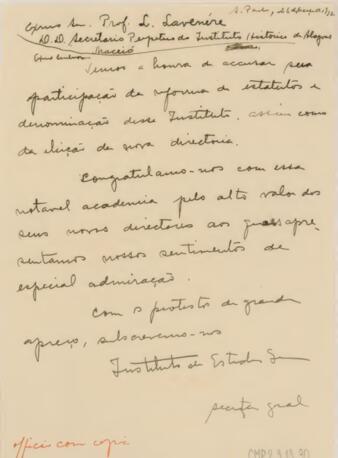 S. Paulo,
Exmo Snr. Prof. L. Lavenére
D.D. Secretario Perpetuo do Instituto Historico de Alagoas
Maceió
Temos a honra de accusar sua
participação da reforma de estatutos e
denominação desse Instituto, assim como
da eleição da nova directoria.
Congratulamo-nos com essa
notavel academia pelo alto valor dos
seus novos directores aos quaes apre-
sentamos nossos sentimentos de
especial admiração.
Com os protestos de grande
apreço, subscrevemo-nos
Instituto de Estudos
secretº geral
officio com copia
CMP2.3.13.30